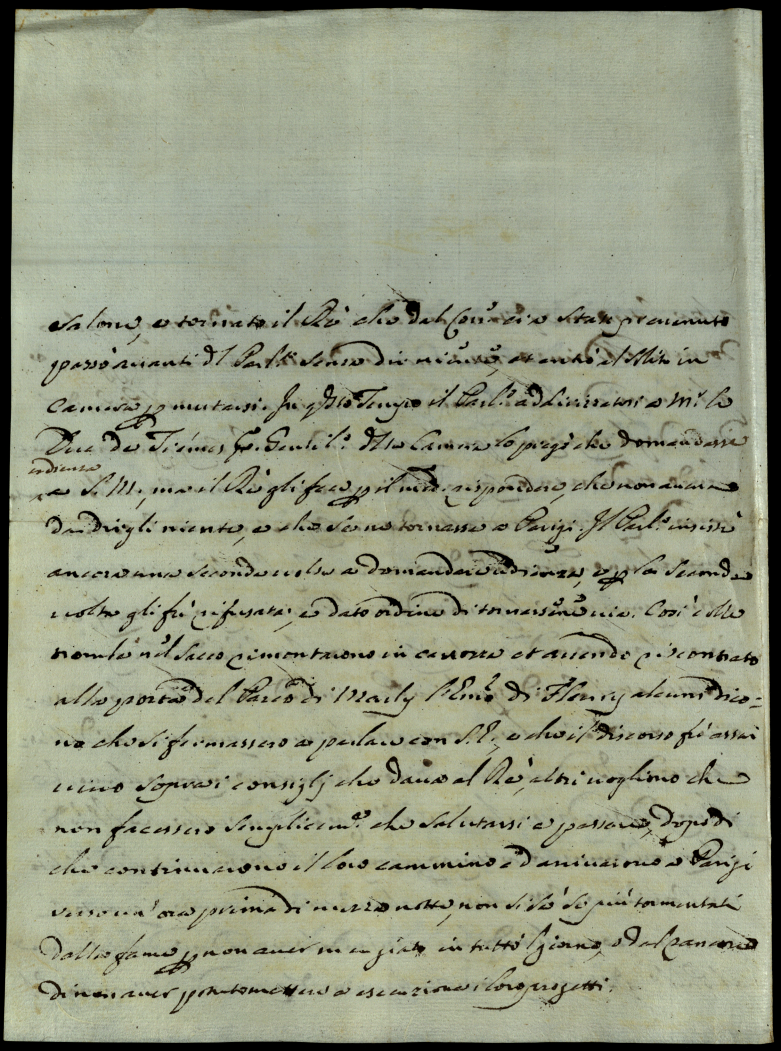 Salone, e tornato il Rè che dal Corriere era stato prevenuto
passò avanti d'l Parl.to senza dir niente, et entrò subito in
camera p mutarsi. In q.sto Tempo il Parl.o addirizzatosi a M.r le
Duc de Tresmes P.o Gentil.o della Camera lo pregò che domandasse
udienza
a S. M., ma il Rè gli fece p il med.o rispondere, che non aveva
da dirgli niente, e che se ne tornasse a Parigi. Il Parl.o insistè
ancora una seconda volta a domandare udienza, e p la seconda
volta gli fù rifusata, e dato ordine di tornarsene via. Così colle
trombe nel Sacco rimontarono in carrozza et avendo riscontrato
alla porta del Parco di Marly l'Em.o di Fleury alcuni dico=
no che si fermassero a parlare con S. E., e che il discorso fù assai
vivo sopra i consiglj che dava al Rè, altri vogliono che
non facessero semplicem.e che salutarsi e passare, dopo di
che continuarono il loro cammino ed arrivarono a Parigi
verso un'ora prima di mezza notte, non si sà se più tormentati
dalla fame p non aver mangiato in tutto l giorno, o dal
di non aver potuto mettere a esecuzione i loro progetti.